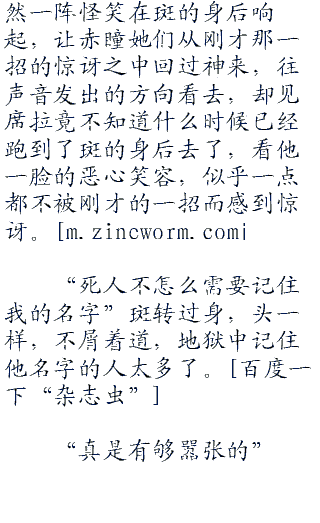 然一阵怪笑在斑的身后响
起，让赤瞳她们从刚才那一
招的惊讶之中回过神来，往
声音发出的方向看去，却见
席拉竟不知道什么时候已经
跑到了斑的身后去了，看他
一脸的恶心笑容，似乎一点
都不被刚才的一招而感到惊
讶。[m.zincworm.com]
“死人不怎么需要记住
我的名字”斑转过身，头一
样，不屑着道，地狱中记住
他名字的人太多了。[百度一
下“杂志虫”]
“真是有够嚣张的”